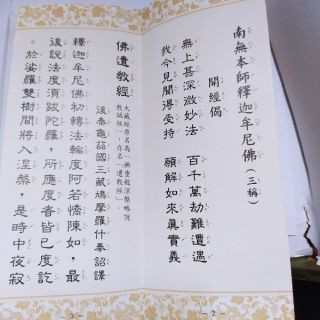 南無本師釋迦牟尼佛(三稱)
開經偈
無上甚深微妙法　百千萬劫難遭遇
我今見聞得受持　願解如來真實義
- 2 -
佛遺教經
大藏經原名為「佛垂般涅槃略說
教誡經」,亦名「遺教經」
後秦龜茲國三藏鳩摩羅什奉詔譯
釋迦牟尼佛初轉法輪度阿若憍陳如,最
後說法度須跋陀羅,所應度者皆已度訖
。於娑羅雙樹間將入涅槃,是時中夜寂
- 3 -